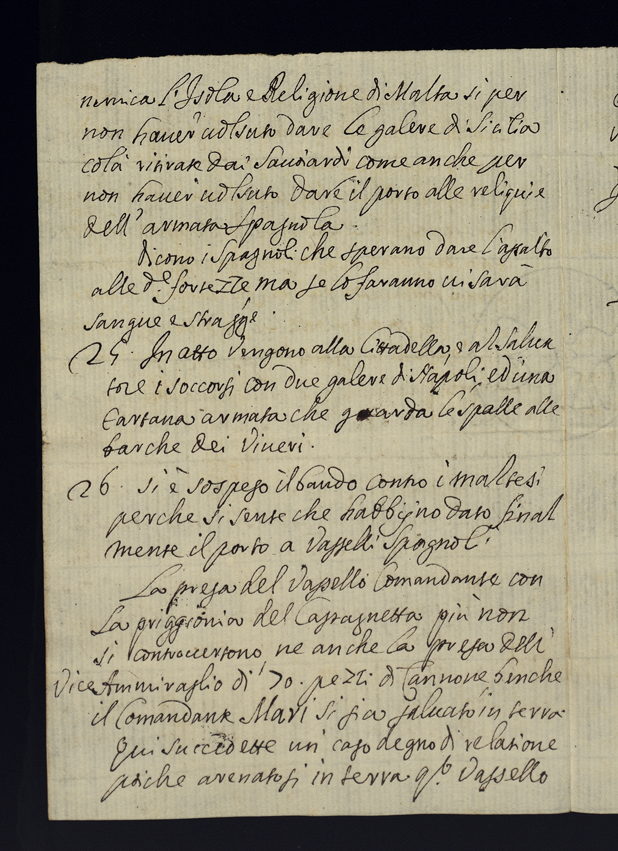 nemica l'Isola e Religione di Malta si per
non hauer uolsuto dare le galere di Sicilia
colà ritirate dai Sauoiardi come anche per
non hauer uolsuto dare il porto alle reliquie
dell'armata Spagnola.
Dicono i Spagnoli che sperano dare l'assalto
alle d.e fortezze ma se lo faranno ui sarà
sangue e stragge.
25. In atto vengono alla Cittadella, e al Salua
tore i soccorsi con due galere di Napoli, ed una
tartana armata che guarda le spalle alle
barche dei Viueri.
26. Si è sospeso il bando contro i maltesi
perche si sente che habbijno dato final
mente il porto a Vasselli Spagnoli
La presa del Vassello Comandante con
la priggionia del Castagnetta più non
si controuertono, ne anche la presa dell'
Vice Ammiraglio di 70. pezzi di Cannone benche
il Comandante Mari si sia saluato in terra.
Qui succedette un caso degno di relatione
poiche arenatosi in terra q.to Vassello